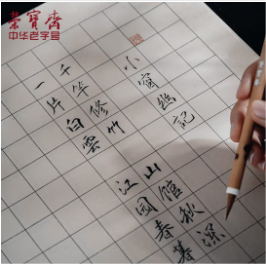 榮寶齋
中华老字号
小窗幽記
千竿修竹
一片白雲
山館秋深
江園春暮